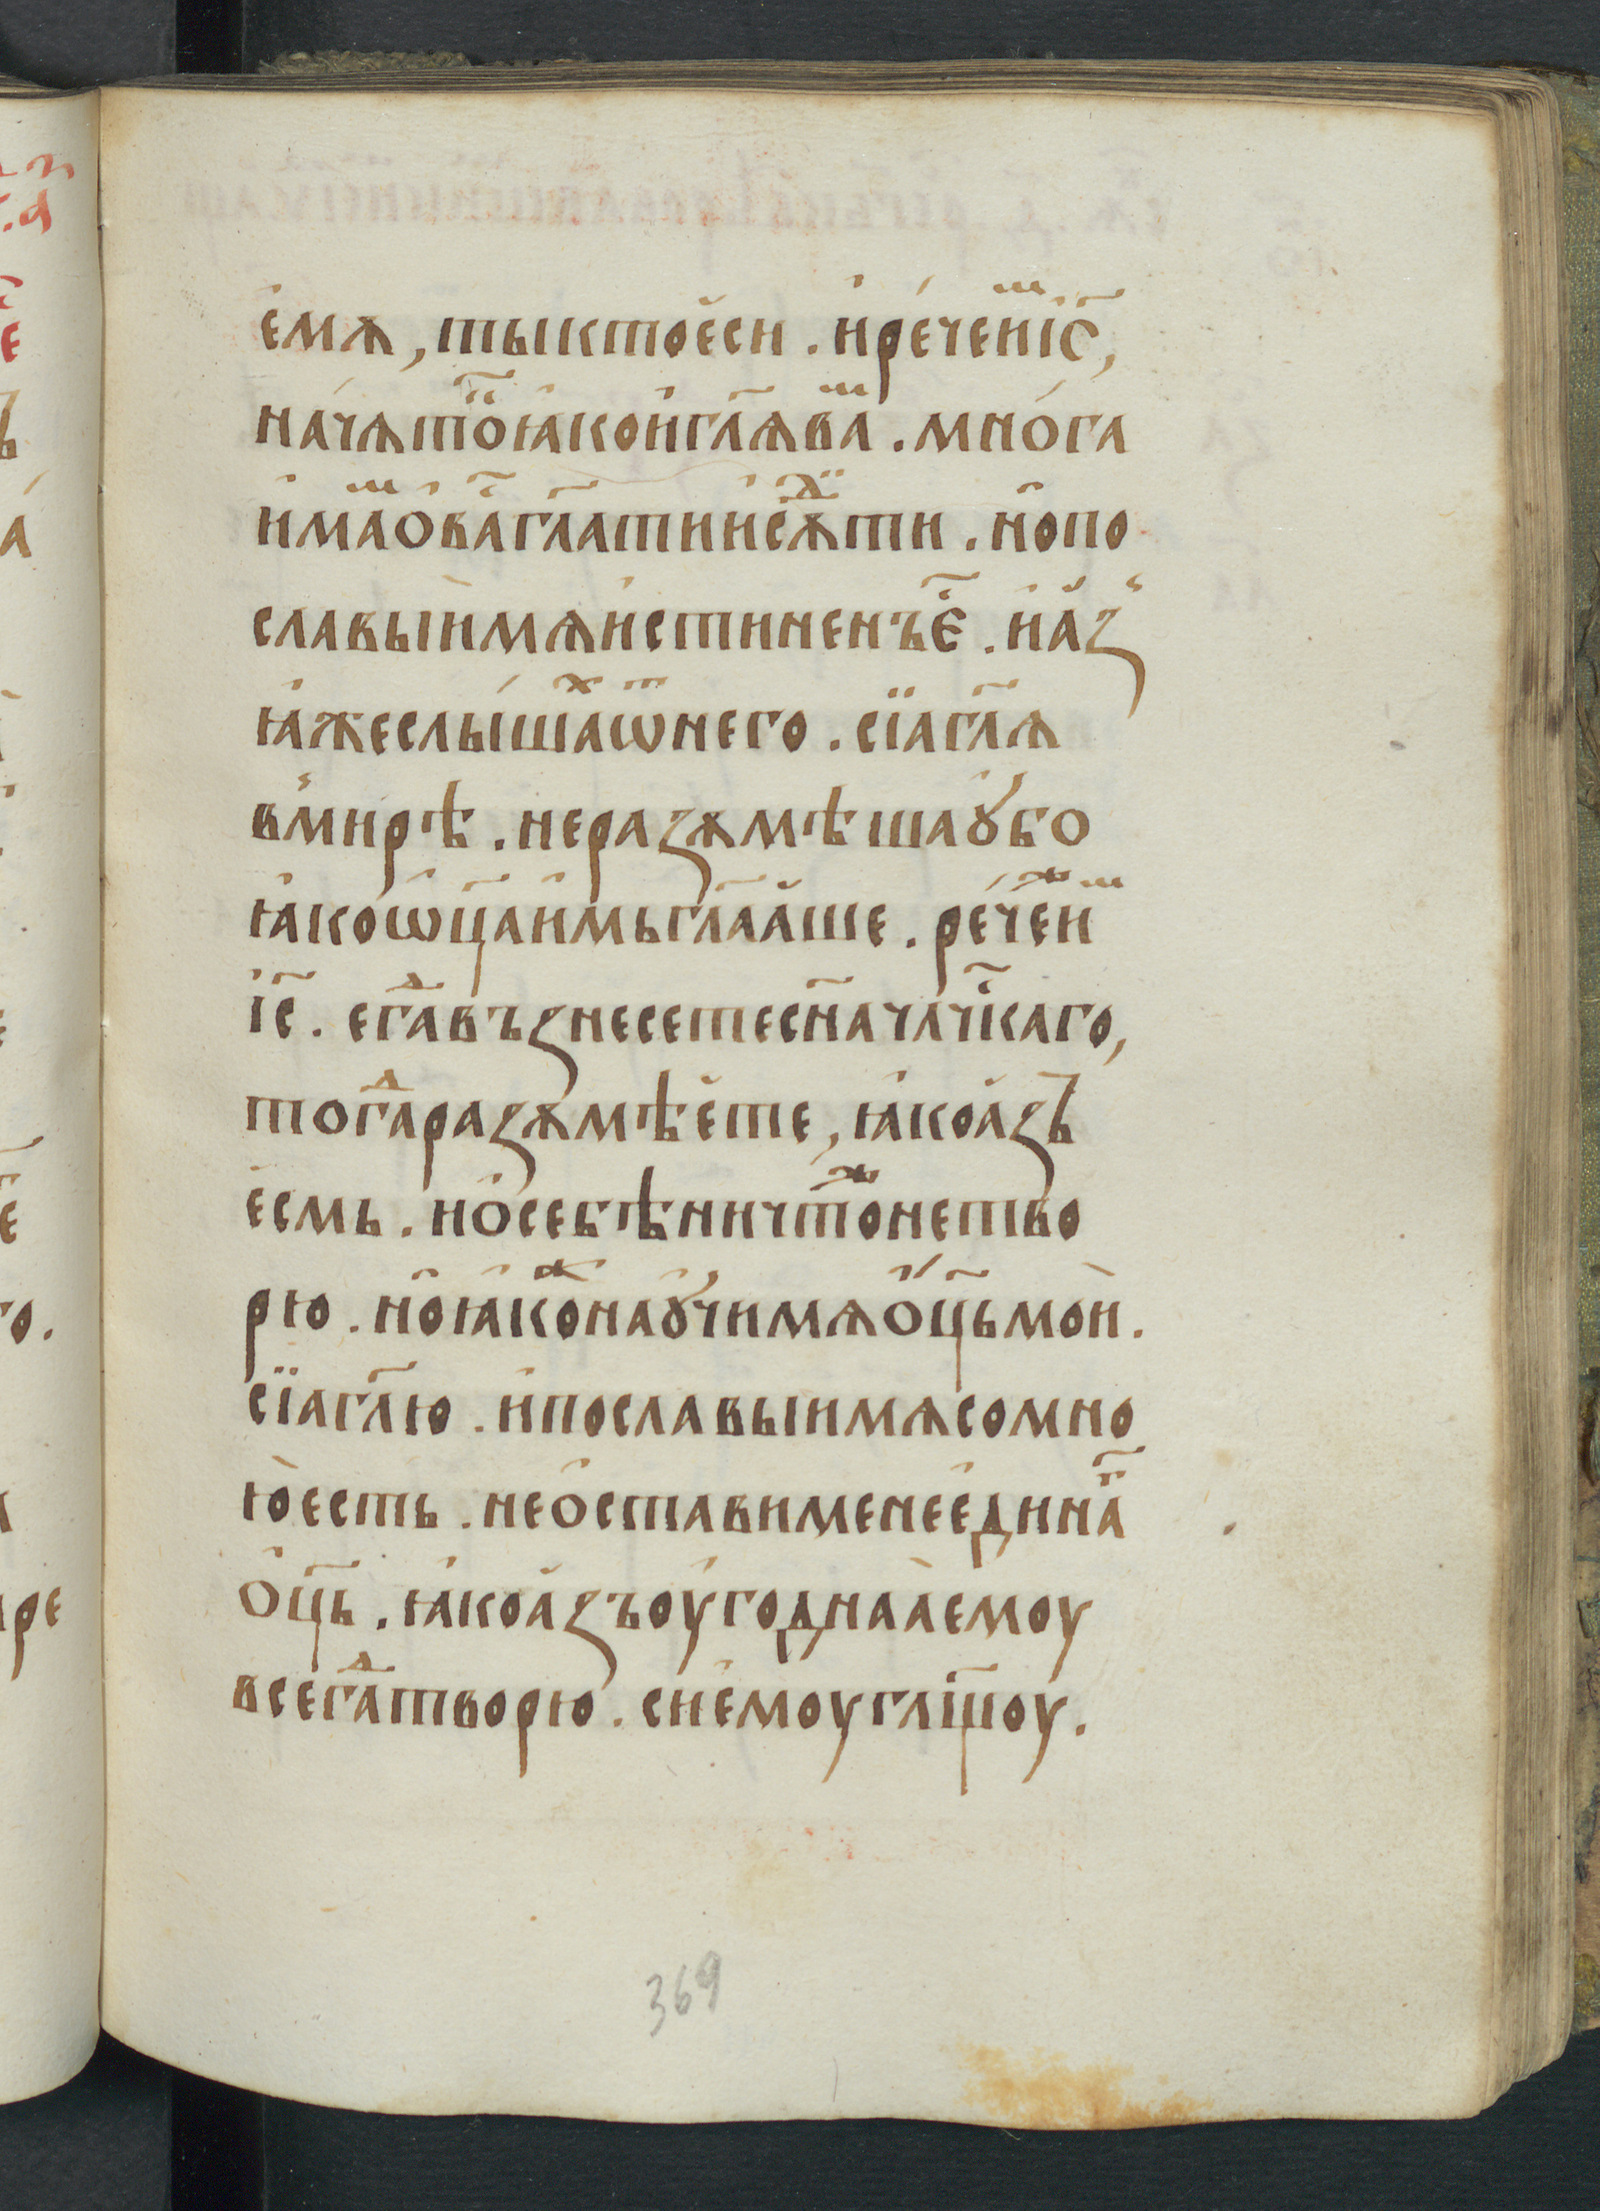 емѫ, ты кто̀ есѝ. и҆ рече и҆мⷨ і҃с,
нача́тоⷦ҇ ꙗ҆ко и҆ гл҃ѧ ваⷨ. мно́га
и҆маⷨ о҆ ваⷭ҇ гл҃ати и҆ сѫⷣти. но̑ по
славыи мѧ и҆стиненъ є҆ⷭ҇. и҆ а҆ꙁ̾
ꙗ҆же слы́шаⷯ ѿ него. сїа гл҃ѧ
в̾ мирѣ. не раꙁѫмѣша ꙋ҆бо
ꙗ҆ко ѡ҆ц҃а и҆мь гл҃ааше. ре́чеⷤ иⷨ
і҃с. егⷣа въꙁнесете сн҃а чл҃чⷭ҇каго,
тогⷣа раꙁѫмѣе҆те, ꙗ҆ко а҆ꙁъ
е҆смь. и҆ о҆ себѣ ничтоⷤ не тво
рю. но̑ ꙗ҆коⷤ наꙋ҆чи мѧ ѻ҆ц҃ь мо́и.
сїа гл҃ю. и҆ пославыи мѧ со мно
ю̀ есть. не ѻ҆стави мене е҆динаⷢ҇
ѻ҆ц҃ь. ꙗ҆ко а҆ꙁъ оу҆годнаа̀ емоу
всегⷣа творю. сиѐмоу гл҃іꙋ҆оу.
369